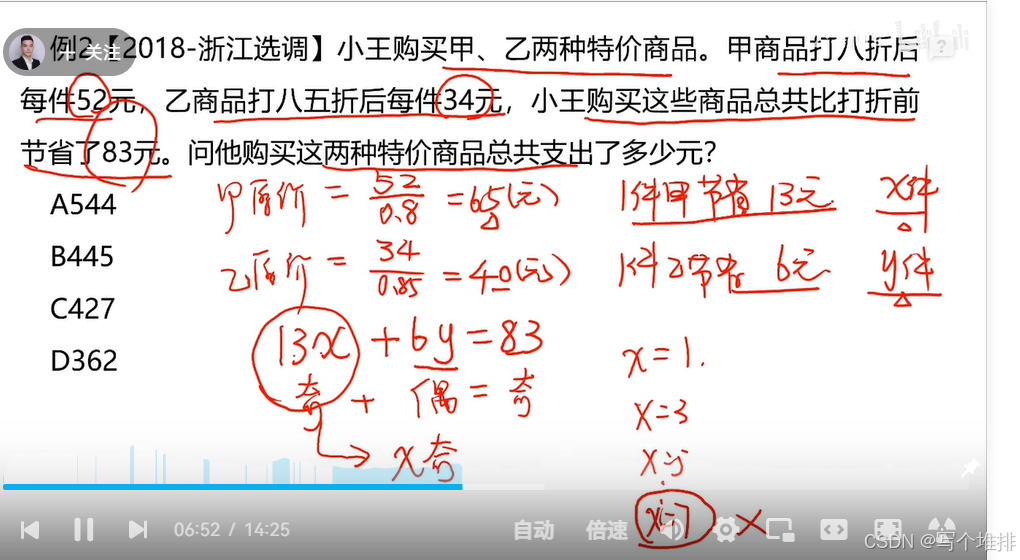 + 关注
例2【2018-浙江选调】小王购买甲、乙两种特价商品。甲商品打八折后
每件52元，乙商品打八五折后每件34元，小王购买这些商品总共比打折前
节省了83元。问他购买这两种特价商品总共支出了多少元？
A544
B445
C427
D362
甲原价 = 52/0.8 = 65(元)
1件甲节省 13元 x件
乙原价 = 34/0.85 = 40(元)
1件乙节省 6元 y件
13x + 6y = 83
奇 + 偶 = 奇
x奇
x=1.
x=3
x=5
x=7 ×
06:52 / 14:25
自动
倍速
CSDN @写个堆排